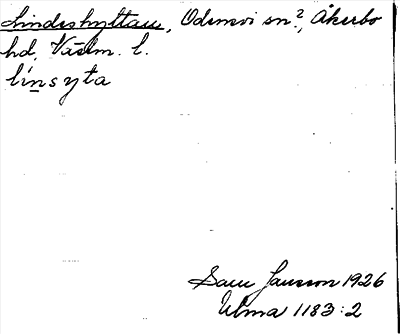 Lindeshyttan, Odensvi sn?, Åkerbo
hd, Västm. l.
linsyta
Sam Jansson 1926
Ulma 1183:2